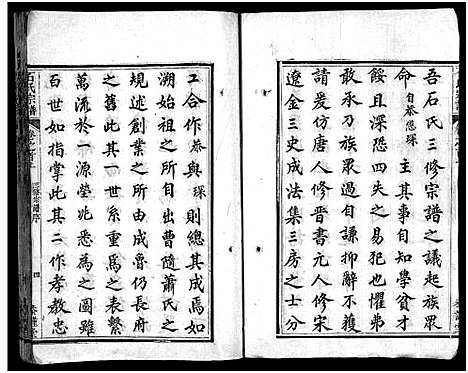 吾石氏三修宗譜之議也起族眾
命自恭愚琛主其事自知學貧才
餒且深恐四失之易犯也懼弗
敢承乃族眾過自謙抑辭不獲
請爰仿唐人作隋人修宋
遼金三史成法集三房之士分
工合作恭與琛則總其成焉如
溯始祖之所自出曹隨蕭氏之
規述創業之所由成魯仍長府
之舊此其一世系重為之表繫
萬流於一源塋兆悉為之圖雖
百世如指掌此其二作孝教忠
石氏宗譜
四